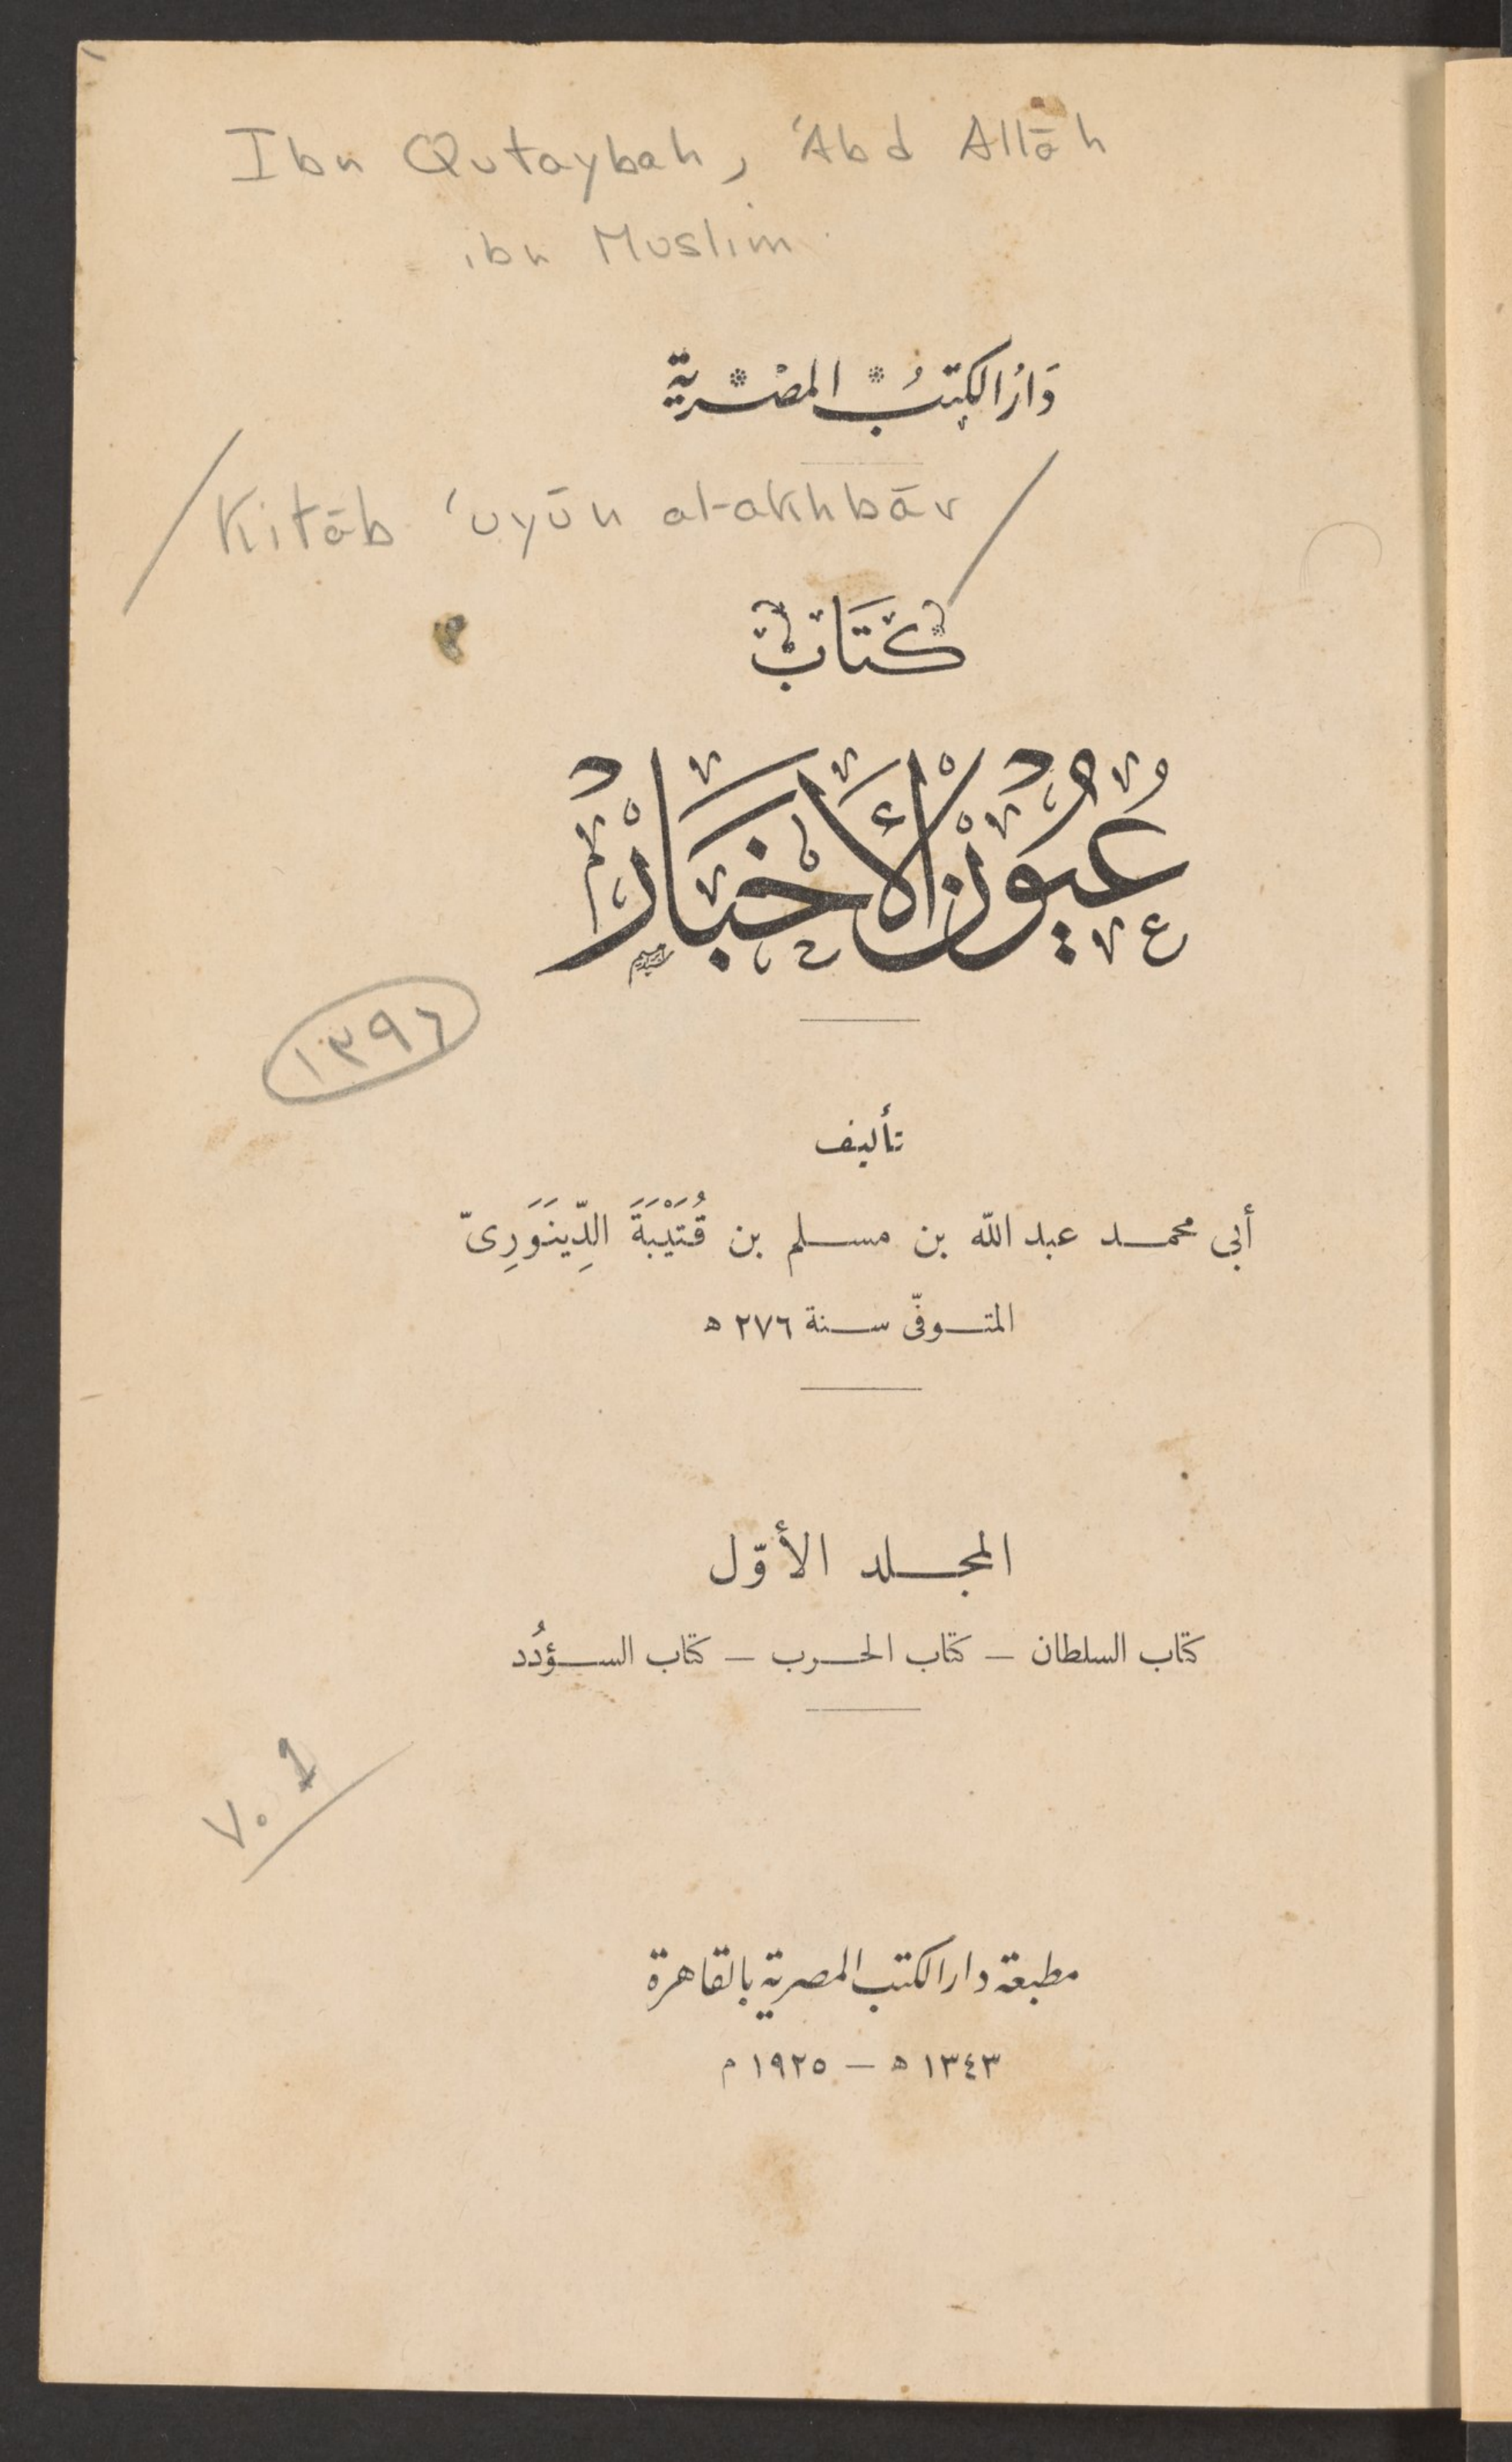 Ibn Qutaybah, 'Abd Allāh
ibn Muslim
دَارُ الكتبُ المصْرية
Kitāb 'uyūn al-akhbār
كتَابُ
عُيُون الأَخْبَار
١٣٩٦
تأليف
أبى محمد عبد الله بن مسلم بن قُتَيْبَةَ الدِّينَوَرِىّ
المتوفّى سنة ٢٧٦ ه
المجلد الأوّل
كتاب السلطان – كتاب الحرب – كتاب السؤدُد
v. 1
مطبعة دار الكتب المصرية بالقاهرة
١٣٤٣ ه – ١٩٢٥ م